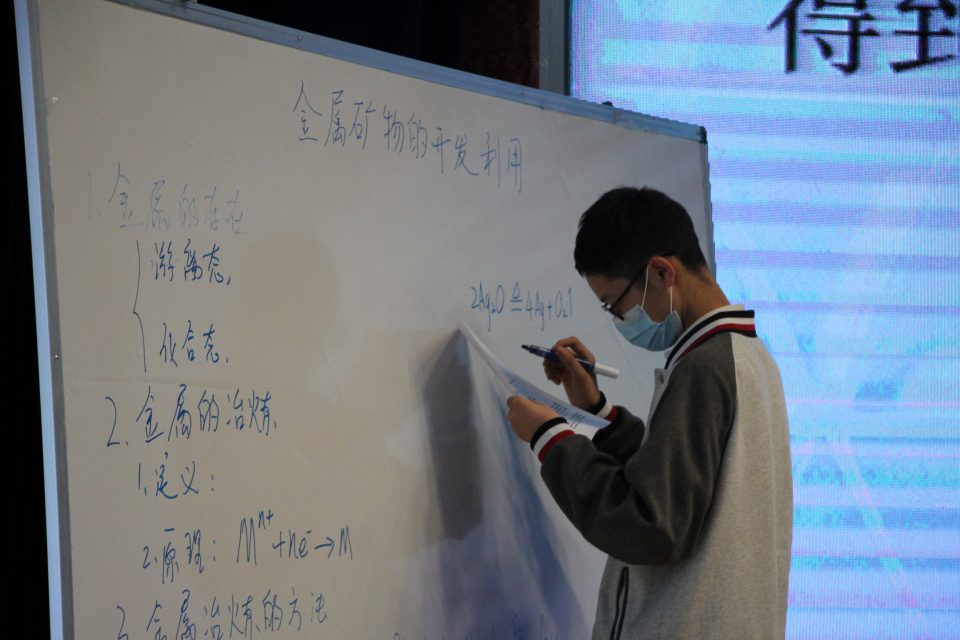 得到
金属矿物的开发利用
1、金属的存在
游离态,
化合态,
2、金属的冶炼
1、定义：
2、原理：Mⁿ⁺+ne⁻→M
3、金属冶炼的方法
2Ag₂O≜4Ag+O₂↑